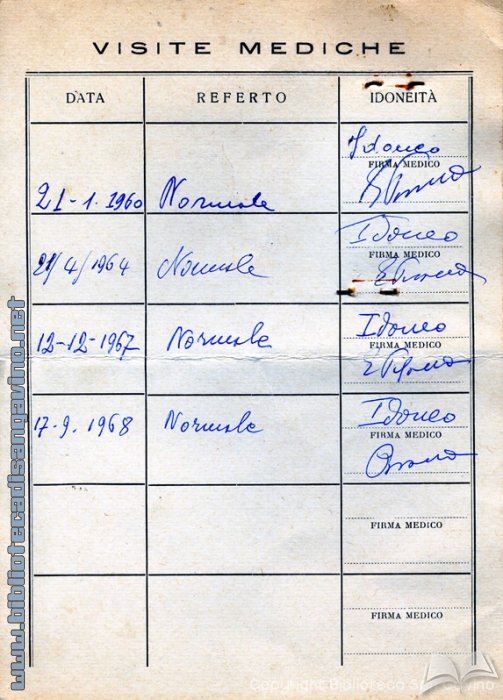 VISITE MEDICHE
DATA REFERTO IDONEITÀ
Idoneo
FIRMA MEDICO
21-1.1960 Normale
Idoneo
FIRMA MEDICO
21/4/1964 Normale
Idoneo
12-12-1967 Normale
FIRMA MEDICO
Idoneo
17-9.1968 Normale
FIRMA MEDICO
FIRMA MEDICO
FIRMA MEDICO
www.bibliotecadisangavino.net